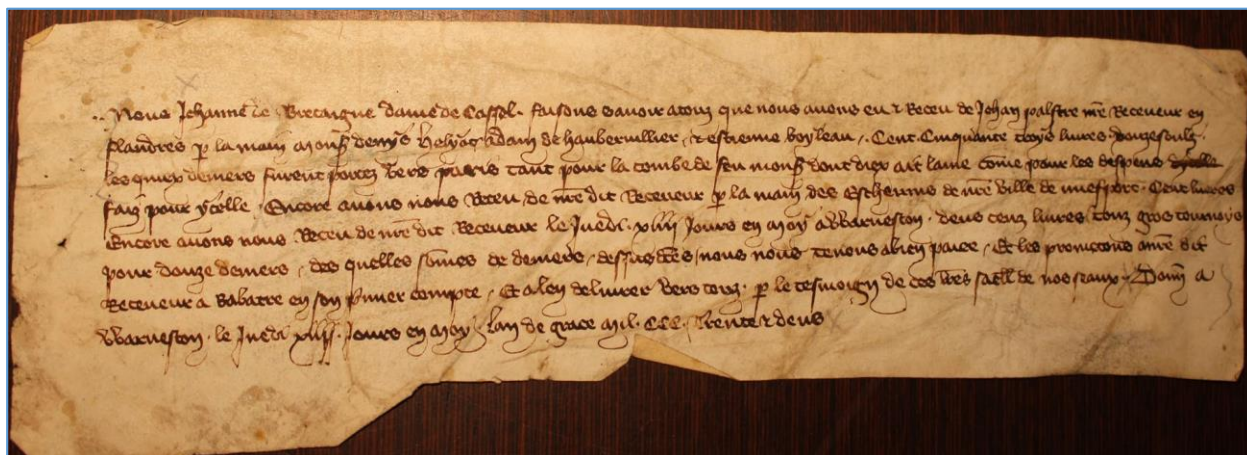 .. Nous Jehanne de Bretaigne dame de Cassel. faisons savoir a touz que nous avons eu & Receu de Jehan palstre nre Receveur en
flandres p la main monss denys helyas adam de haubervillier, & estienne boyleau, Cent. Cinquante troys livres douzesoulz.
les quiex deniers furent portez vers paris tant pour la tombe de feu monss dont diex ait lame come pour les despens
faiz pour ycelle. Encore avons nous Receu de nre dit Receveur p la main des Eschevins de nre ville de Cent livres
Encore avons nous Receu de nre dit Receveur le Juedi xiiij Jours en may a Warneston. deus cenz livres, touz gros tournoys
pour douze deniers, des quelles somes de deniers, dessusdtes, nous nous tenons a bien paiee, Et les promettons a nre dit
Receveur a Rabatre en son pmier compte, Et a len delivrer vers touz. p le tesmoign de ces lres saell de noz seaux. Donn a
Warneston. le Juedi xiiij. Jours en may, lan de grace mil. CCC. trente & deus